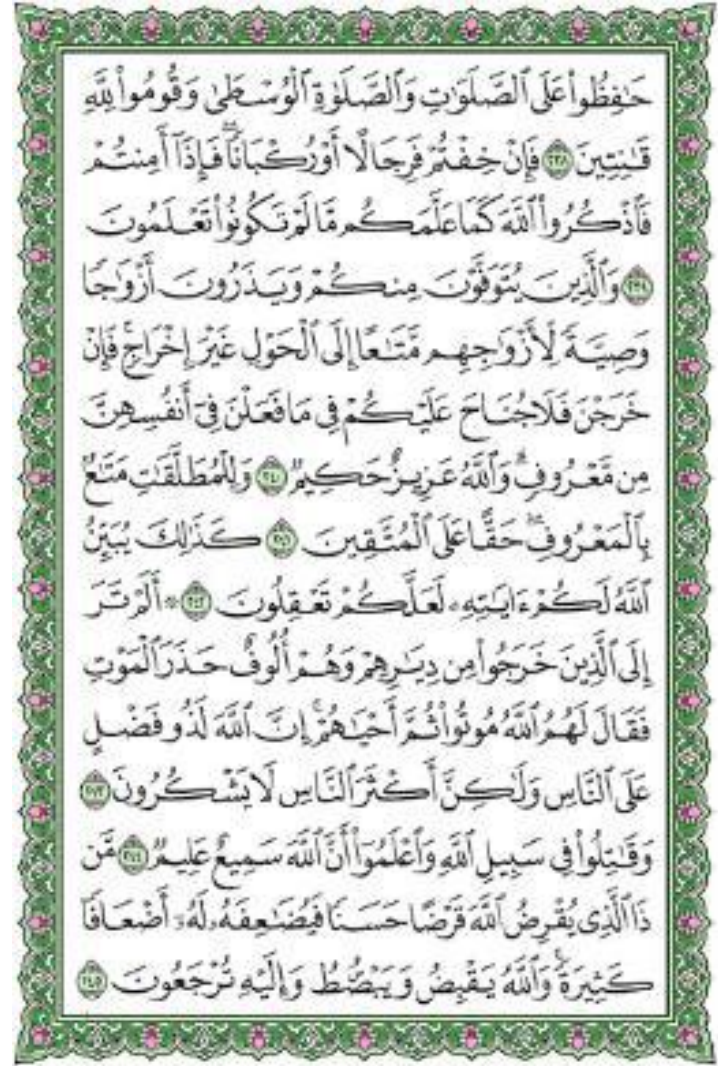 حَٰفِظُوا۟ عَلَى ٱلصَّلَوَٰتِ وَٱلصَّلَوٰةِ ٱلْوُسْطَىٰ وَقُومُوا۟ لِلَّهِ
قَٰنِتِينَ ٢٣٨ فَإِنْ خِفْتُمْ فَرِجَالًا أَوْ رُكْبَانًاۖ فَإِذَآ أَمِنتُمْ
فَٱذْكُرُوا۟ ٱللَّهَ كَمَا عَلَّمَكُم مَّا لَمْ تَكُونُوا۟ تَعْلَمُونَ
٢٣٩ وَٱلَّذِينَ يُتَوَفَّوْنَ مِنكُمْ وَيَذَرُونَ أَزْوَٰجًا
وَصِيَّةً لِّأَزْوَٰجِهِم مَّتَٰعًا إِلَى ٱلْحَوْلِ غَيْرَ إِخْرَاجٍۚ فَإِنْ
خَرَجْنَ فَلَا جُنَاحَ عَلَيْكُمْ فِى مَا فَعَلْنَ فِىٓ أَنفُسِهِنَّ
مِن مَّعْرُوفٍۗ وَٱللَّهُ عَزِيزٌ حَكِيمٌ ٢٤٠ وَلِلْمُطَلَّقَٰتِ مَتَٰعٌۢ
بِٱلْمَعْرُوفِۖ حَقًّا عَلَى ٱلْمُتَّقِينَ ٢٤١ كَذَٰلِكَ يُبَيِّنُ
ٱللَّهُ لَكُمْ ءَايَٰتِهِۦ لَعَلَّكُمْ تَعْقِلُونَ ٢٤٢ ۞ أَلَمْ تَرَ
إِلَى ٱلَّذِينَ خَرَجُوا۟ مِن دِيَٰرِهِمْ وَهُمْ أُلُوفٌ حَذَرَ ٱلْمَوْتِ
فَقَالَ لَهُمُ ٱللَّهُ مُوتُوا۟ ثُمَّ أَحْيَٰهُمْۚ إِنَّ ٱللَّهَ لَذُو فَضْلٍ
عَلَى ٱلنَّاسِ وَلَٰكِنَّ أَكْثَرَ ٱلنَّاسِ لَا يَشْكُرُونَ ٢٤٣
وَقَٰتِلُوا۟ فِى سَبِيلِ ٱللَّهِ وَٱعْلَمُوٓا۟ أَنَّ ٱللَّهَ سَمِيعٌ عَلِيمٌ ٢٤٤ مَّن
ذَا ٱلَّذِى يُقْرِضُ ٱللَّهَ قَرْضًا حَسَنًا فَيُضَٰعِفَهُۥ لَهُۥٓ أَضْعَافًا
كَثِيرَةًۚ وَٱللَّهُ يَقْبِضُ وَيَبْصُۜطُ وَإِلَيْهِ تُرْجَعُونَ ٢٤٥